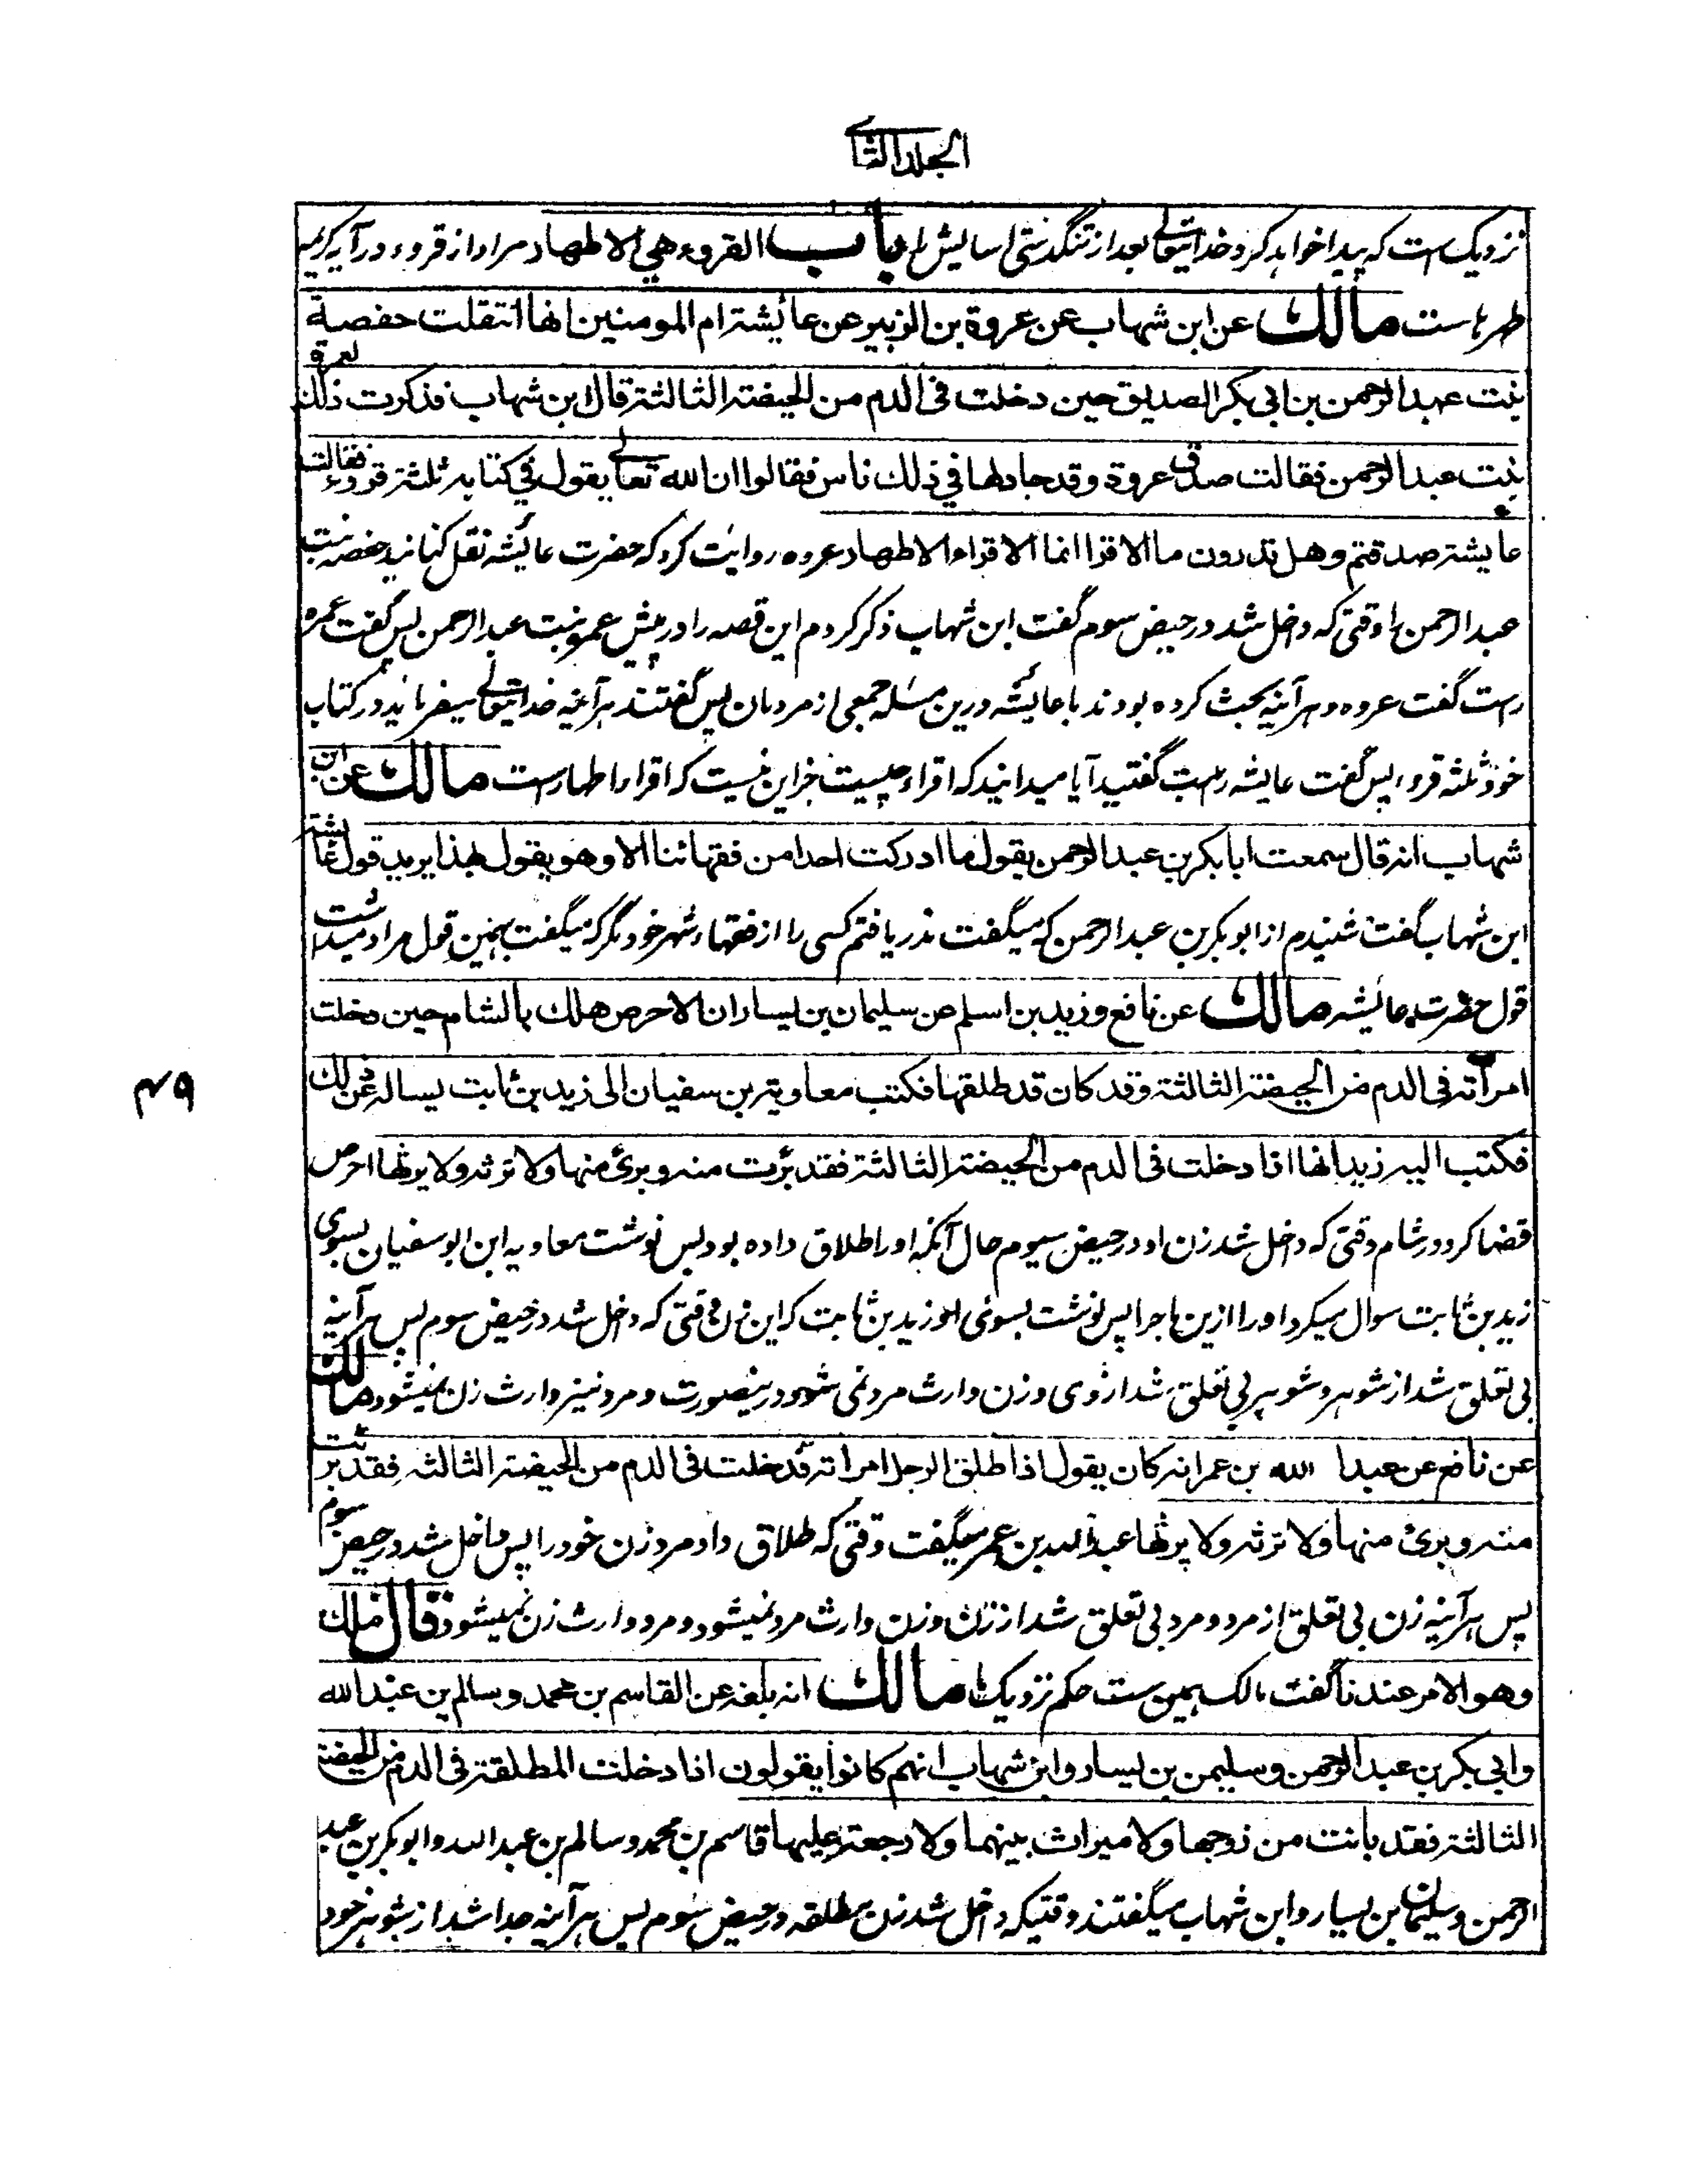 الجلد الثانی
نزدیک ست که پیدا خواهد کرد خدایتعالی بعد از تنگدستی اسایش را باب القروء هي الاطهار مراد از قروء در آیه کریمه
طهرهاست مالك عن ابن شهاب عن عروة بن الزبير عن عائشة ام المومنين انها انتقلت حفصة
بنت عبد الرحمن بن ابي بكر الصديق حين دخلت في الدم من الحيضة الثالثة قال ابن شهاب فذكرت ذلك لعمرة
بنت عبد الرحمن فقالت صدق عروة وقد جادلها في ذلك ناس فقالوا ان الله تعالى يقول في كتابه ثلثة قروء فقالت
عايشة صدقتم وهل تدرون ما الاقرا انما الاقراء الاطهار عروه روایت کرد که حضرت عائشه نقل کنانید حفصه بنت
عبد الرحمن را وقتی که داخل شد در حیض سوم گفت ابن شهاب ذکر کردم این قصه را در پیش عمره بنت عبد الرحمن پس گفت عمره
راست گفت عروه و هر آئینه بحث کرده بودند با عایشه درین مسئله جمعی از مردمان پس گفتند هر آئینه خدایتعالی میفرماید در کتاب
خود ثلثه قروء پس گفت عایشه راست گفتید آیا میدانید که اقراء چیست جز این نیست که اقراء اطهار ست مالك عن ابن
شهاب انه قال سمعت ابا بكر بن عبد الرحمن يقول ما ادركت احدا من فقهائنا الا وهو يقول هذا يريد قول عائشة
ابن شهاب گفت شنیدم از ابوبکر بن عبد الرحمن که میگفت ندریافتم کسی را از فقهاء شهر خود مگر که میگفت بهمین قول مراد میداشت
قول حضرت عائشه مالك عن نافع وزيد بن اسلم عن سليمان بن يسار ان الاحوص هلك بالشام حين دخلت
امرأته في الدم من الحيضة الثالثة وقد كان قد طلقها فكتب معاوية بن سفيان الى زيد بن ثابت يساله عن ذلك
فكتب اليه زيد انها اذا دخلت في الدم من الحيضة الثالثة فقد برئت منه وبرئ منها ولا ترثه ولا يرثها احوص
قضا کرد در شام وقتی که داخل شد زن او در حیض سیوم حال آنکه او را طلاق داده بود پس نوشت معاویه ابن ابو سفیان بسوی
زید بن ثابت سوال میکرد او را ازین ماجرا پس نوشت بسوی او زید بن ثابت که این زن وقتی که داخل شد در حیض سوم پس هر آینه
بی تعلق شد از شوهر و شوهر بی تعلق شد از وی و زن وارث مرد نمی شود درینصورت و مرد نیز وارث زن نمیشود مالك
عن نافع عن عبد الله بن عمر انه كان يقول اذا طلق الرجل امراته فدخلت في الدم من الحيضة الثالثة فقد برئت
منه وبرئ منها ولا ترثه ولا يرثها عبد الله بن عمر میگفت وقتی که طلاق داد مرد زن خود را پس داخل شد در حیض سوم
پس هر آینه زن بی تعلق از مرد و مرد بی تعلق شد از زن و زن وارث مرد نمیشود و مرد وارث زن نمیشود قال مالك
وهو الامر عندنا گفت مالک همین ست حکم نزدیک ما مالك انه بلغه عن القاسم بن محمد وسالم بن عبد الله
وابي بكر بن عبد الرحمن وسليمن بن يسار وابن شهاب انهم كانوا يقولون اذا دخلت المطلقة في الدم من الحيضة
الثالثة فقد بانت من زوجها ولا ميراث بينهما ولا رجعة عليها قاسم بن محمد و سالم بن عبد الله و ابو بکر بن عبد
الرحمن و سلیمان بن یسار و ابن شهاب میگفتند وقتیکه داخل شد زن مطلقه در حیض سوم پس هر آینه جدا شد از شوهر خود
۴۹